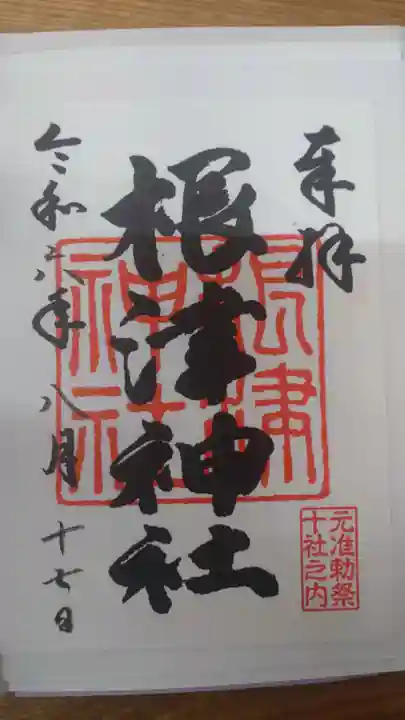 奉拝
根津神社
根津神社
元准勅祭
十社之内
令和六年八月十七日